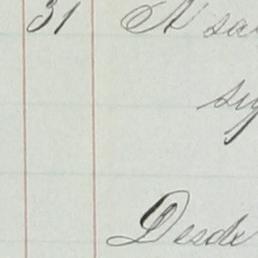 31 A sa
sig
Desde